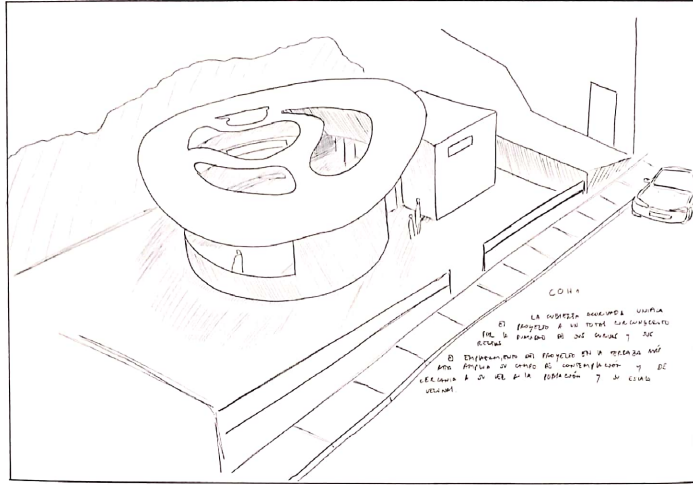 LA CUBIERTA UNIFICA
EL PROYECTO A UN TOTAL CIRCUNSCRITO
POR LA DE SUS CURVAS Y SUS
EL EMPLAZAMIENTO DEL PROYECTO EN LA TERRAZA MÁS
AMPLIA SU CAMPO DE CONTEMPLACIÓN Y DE
CERCANÍA A SU VEZ A LA POBLACIÓN Y SU ESCALA
VECINAL